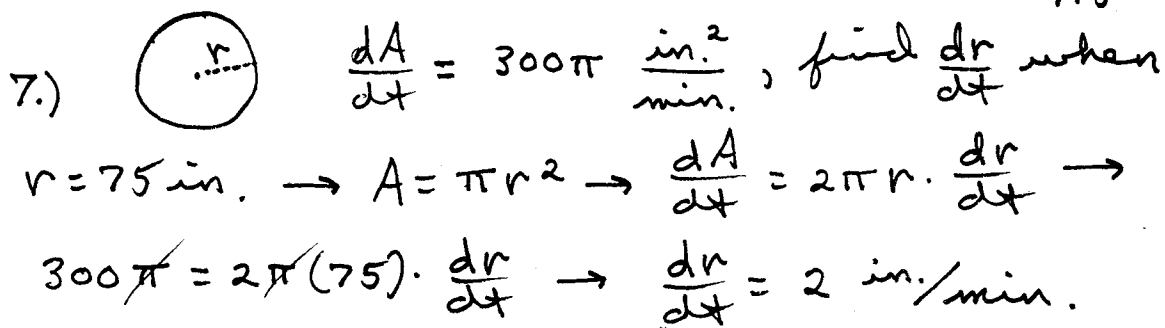 7.) r dA/dt = 300π in.²/min., find dr/dt when
r = 75 in. → A = πr² → dA/dt = 2πr · dr/dt →
300π = 2π(75) · dr/dt → dr/dt = 2 in./min.